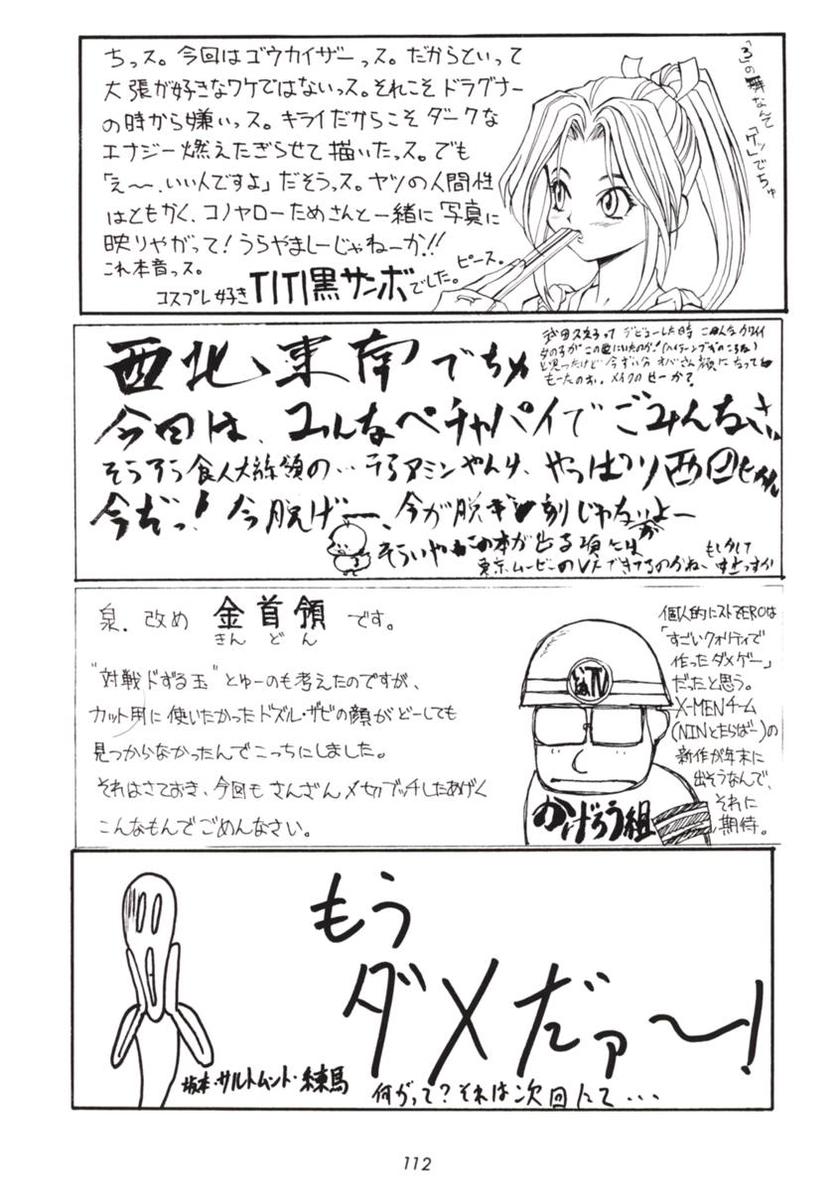 ちっス。今回はゴウカイザーっス。だからといって
大張が好きなワケではないっス。それこそドラグナー
の時から嫌いっス。キライだからこそダークな
エナジー燃えたぎらせて描いたっス。でも
「え〜、いい人ですよ」だそうっス。ヤツの人間性
はともかく、コノヤローためさんと一緒に写真に
映りやがって!うらやましーじゃねーか!!
これ本音っス。
コスプレ好き TITI黒サンボでした。ピース。
「3」の舞なんぞ
「ケッ」でちゅ
西北、東南でちゅ
デビューした時
今回は、みんなペチャパイでごみんなさい
そうろう食人大統領の…
やっぱり
今だっ!今脱げー、今が脱ぎ刻じゃないかよー
そういや この本が出る頃には
東京ムービーのVFできてるのかねー
もしかして
泉.改め 金首領 です。
きん どん
"対戦ドずる玉"とゅーのも考えたのですが、
カット用に使いたかったドズル・ザビの顔がどーしても
見つからなかったんでこっちにしました。
それはさておき、今回もさんざんメセカブッチしたあげく
こんなもんでごめんなさい。
TV
かげろう組
個人的にストZEROは
「すごいクオリティで
作ったダメゲー」
だったと思う。
X-MENチーム
(NINとたらばー)の
新作が年末に
出そうなんで、
それに
期待。
もう
ダメだァ〜!
坂本・サルトムント・練馬
何がって?それは次回にて・・・
112